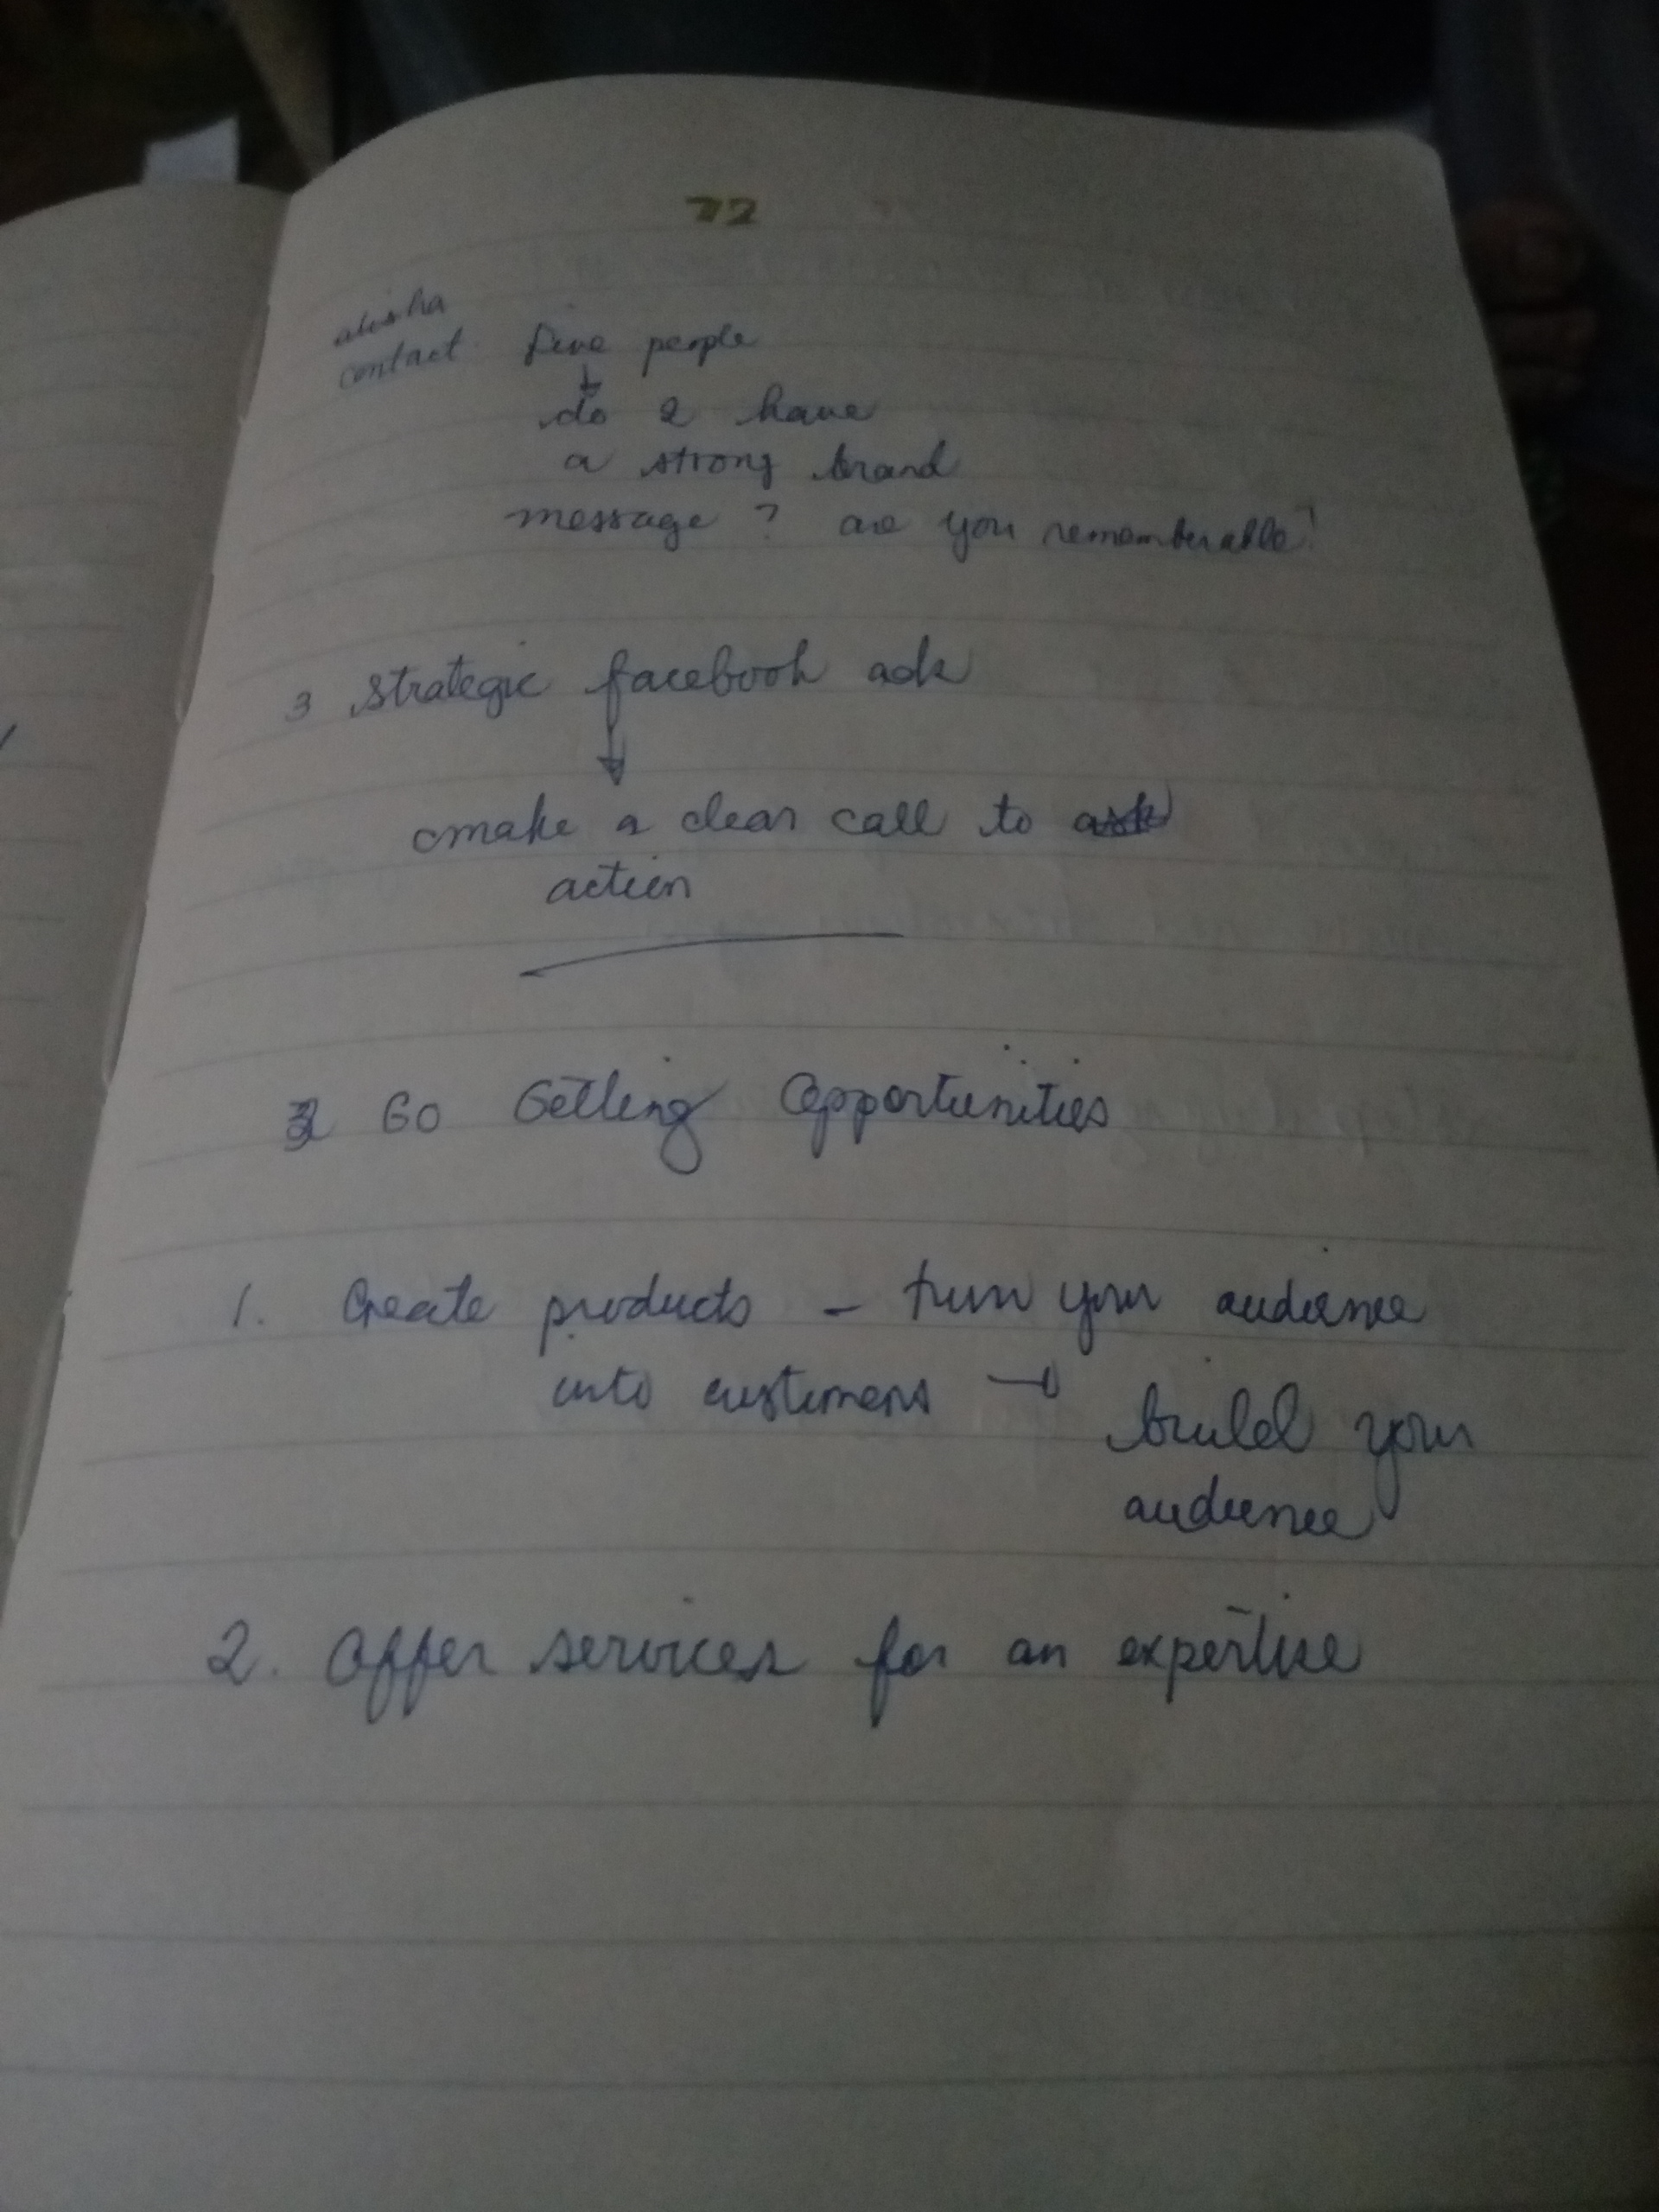 72
alisha
contact five people
do I have
a strong brand
message ? are you rememberable?
3 Strategic facebook ask
make a clear call to
action
Go Getting Opportunities
1. Create products - turn your audience
into customers → build your
audience
2. Offer services for an expertise